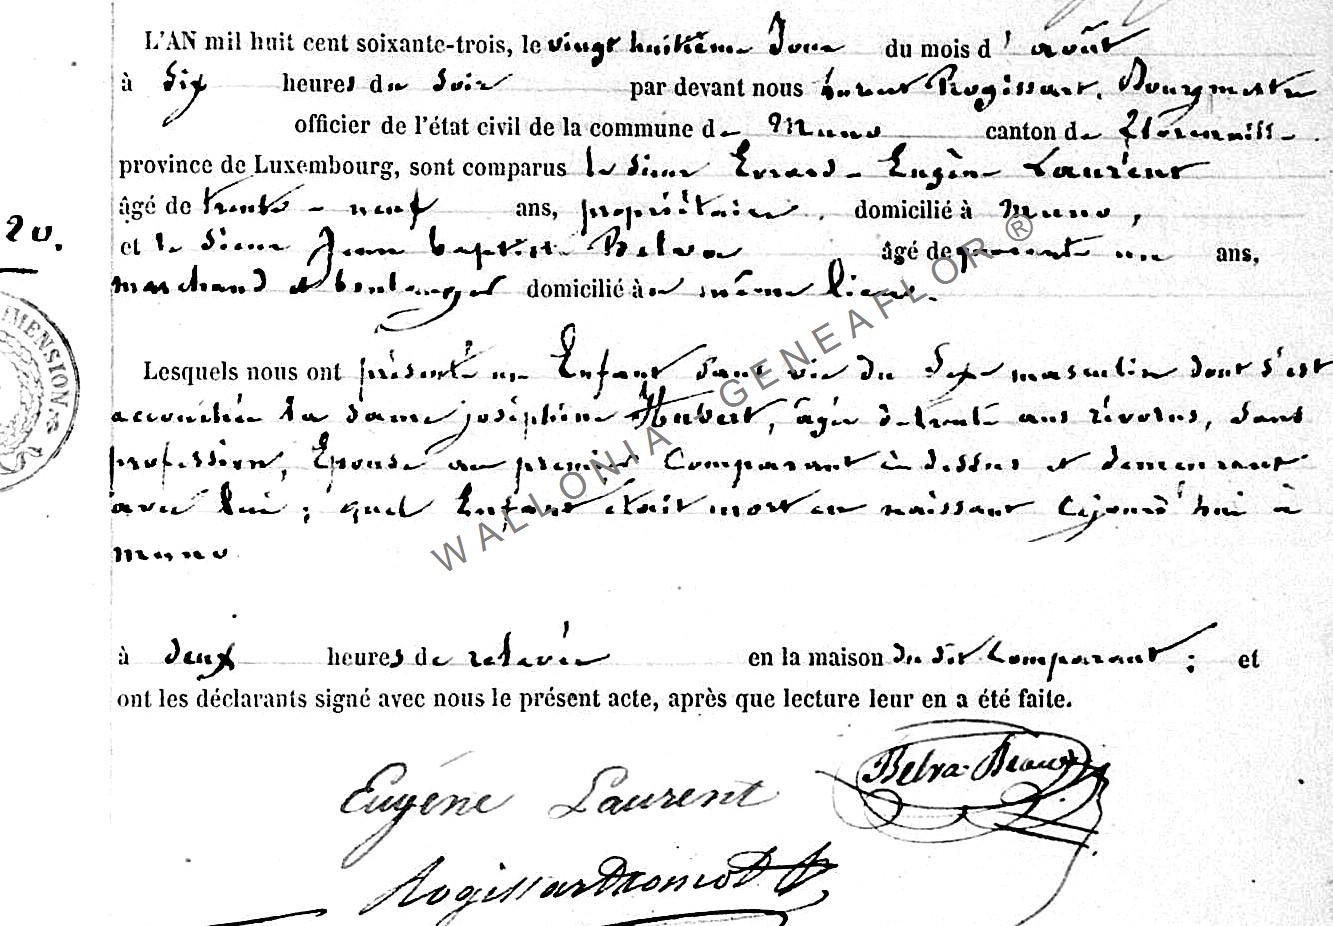 L'AN mil huit cent soixante-trois, le vingt huitième Jour du mois d' août
à Six heures du Soir par devant nous Rogissart, Bourgmestre
officier de l'état civil de la commune de Muno canton de
province de Luxembourg, sont comparus le Sieur Evrard-Eugène Laurent
âgé de trente-neuf ans, propriétaire, domicilié à Muno,
20. et le Sieur Jean baptiste Belva âgé de quarante un ans,
marchand et boulanger domicilié à même lieu.
MENSION
Lesquels nous ont présenté un Enfant sans vie du Sexe masculin dont s'est
accouchée la dame joséphine Hubert, âgée de trente ans révolus, Sans
profession, Epouse au premier Comparant ci dessus et demeurant
avec lui; quel Enfant était mort en naissant Cejourd'hui à
muno
à deux heures de relevée en la maison du dit Comparant; et
ont les déclarants signé avec nous le présent acte, après que lecture leur en a été faite.
Eugène Laurent Belva-
WALLONIA - GENEAFLOR ®